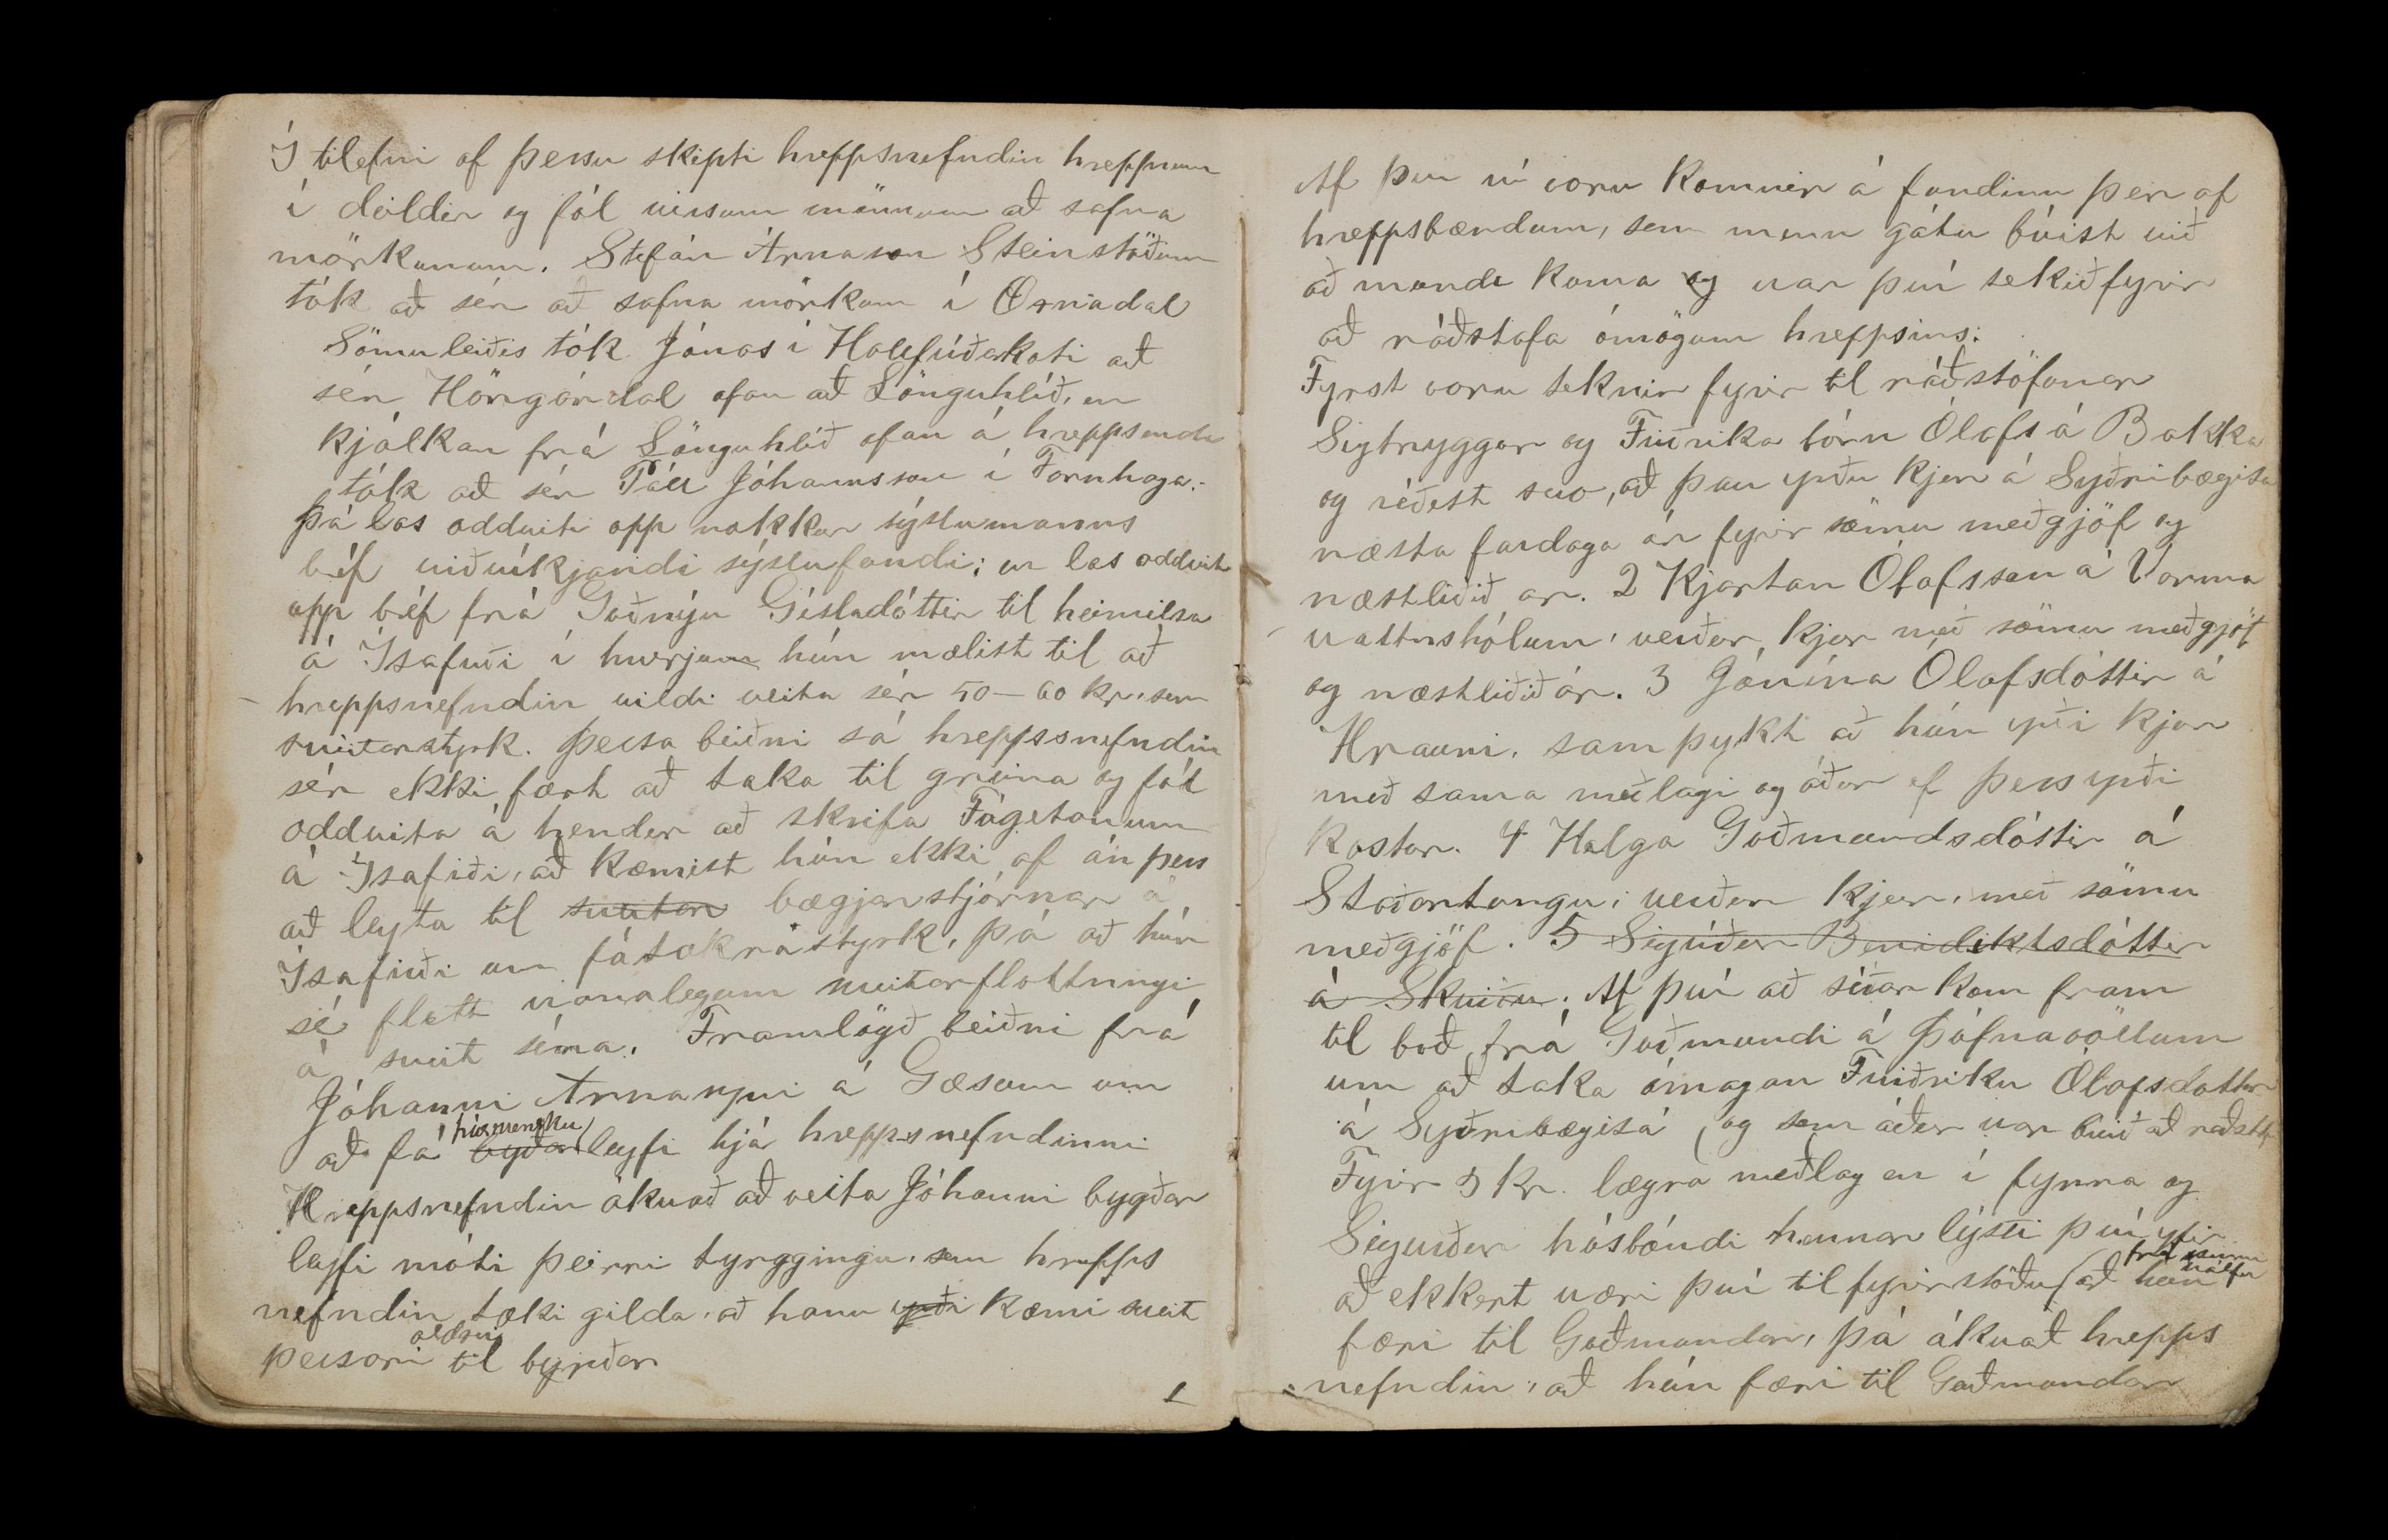 Í tilefni af þessu skipti hreppsnefndin hreppnum
í deildir og fól vissum mönnum að safna
mörkunum. Stefán Árnason Steinstöðum
tók að sér að safna mörkum í Öxnadal
Sömuleiðis tók Jónas í Hallfríðarkoti að
sér Hörgárdal ofan að Lönguhlíð, en
kjálkan frá Lönguhlíð ofan á hreppsenda
tók að sér Páll Jóhannsson í Fornhaga.-
Þá las oddviti opp nokkur sýslumanns
bréf viðvíkjandi sýslufondi; en las oddviti
opp bréf frá Goðnýju Gísladóttir til heimilsa
á Ísafirði í hverjum hún mælist til að
hreppsnefndin vildi veita sér 50-60 kr. sem
sveitarstyrk. Þessa beiðni sá hreppssnefndin
sér ekki fært að taka til greina og fól
oddvita á hendur að skrifa Fógetanum
á Ísafirði, að kæmist hún ekki af án þess
að leyta til sveitar bægjarstjórnar á
Ísafirði um fátækrastyrk, þá að hún
sé flett vianalegum sveitarflottningi
á sveit sína. Framlögð beiðni frá
Jóhanni Árnasyni á Gæsum um
að fá byðar húsmensku leyfi hjá hreppsnefndinni
Hreppsnefndin ákvað að veita Jóhanni bygðar
leyfi móti þeirri tyrggingu, sem hrepps
nefndin tæki gilda, að hann yrði kæmi sveit
þessari aldrei til byrðar
1
Af því nú voru komnir á fundinn þeir af
hreppsbændum, sem menn gátu búist við
að mundi koma og var því tekið fyrir
að ráðstafa ómögum hreppsins:
Fyrst voru teknir fyrir til ráðstöfunar
Sigtryggur og Friðrika börn Ólafs á Bakka
og réðest svo, að þau yrðu kjur á Syðribægisá
næsta fardaga ár fyrir sömu meðgjöf og
næstliðið ar. 2 Kjartan Ólafsson á Varma
vattnshólum, verður kjur með sömu meðgjöf
og næstliðið ár. 3 Jónína Ólafsdóttir á
Hrauni. samþykt að hún yrði kjur
með sama meðlagi og áður ef þess yrði
kostur. 4 Helga Goðmundsdóttir á
Staðartungu, verður kjur, með sömu
meðgjöf. 5 Sigríður Benidiktsdóttir
á Skriðu. Af því að síðar kom fram
til boð frá Goðmundi á Þúfnavöllum
um að taka ómagan Friðriku Ólafsdottur
á Syðribægisá (og sem áður var búið að raðstf
Fyrir 5 kr. lægra meðlag en í fyrra og
Sigurður húsbóndi hennar lýsti því yfir
að ekkert væri því til fyrirstöðu (frá sinni hálfu að hún
færi til Goðmundar, þá ákvað hrepps
nefndin, að hún færi til Goðmundar